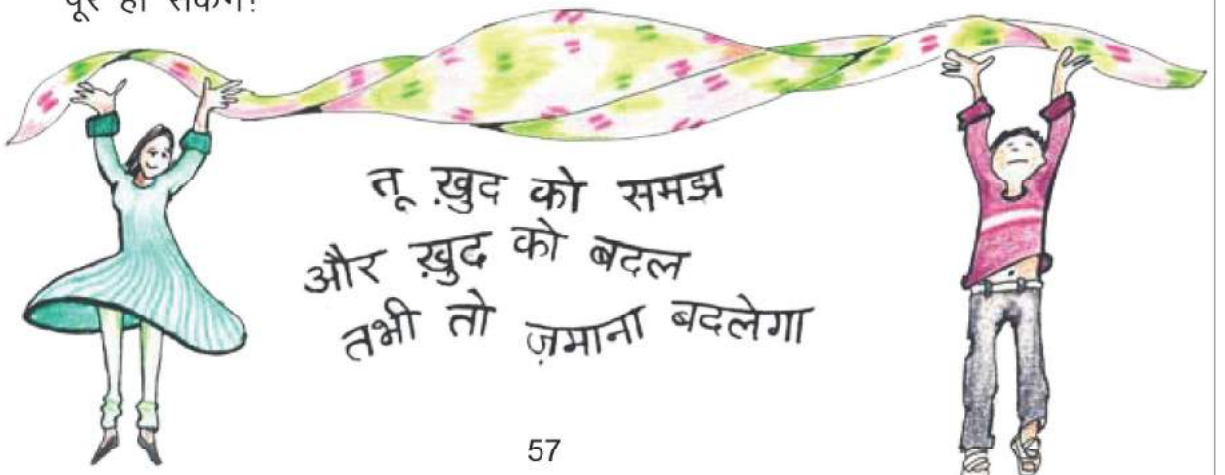 तू ख़ुद को समझ
और ख़ुद को बदल
तभी तो ज़माना बदलेगा
57